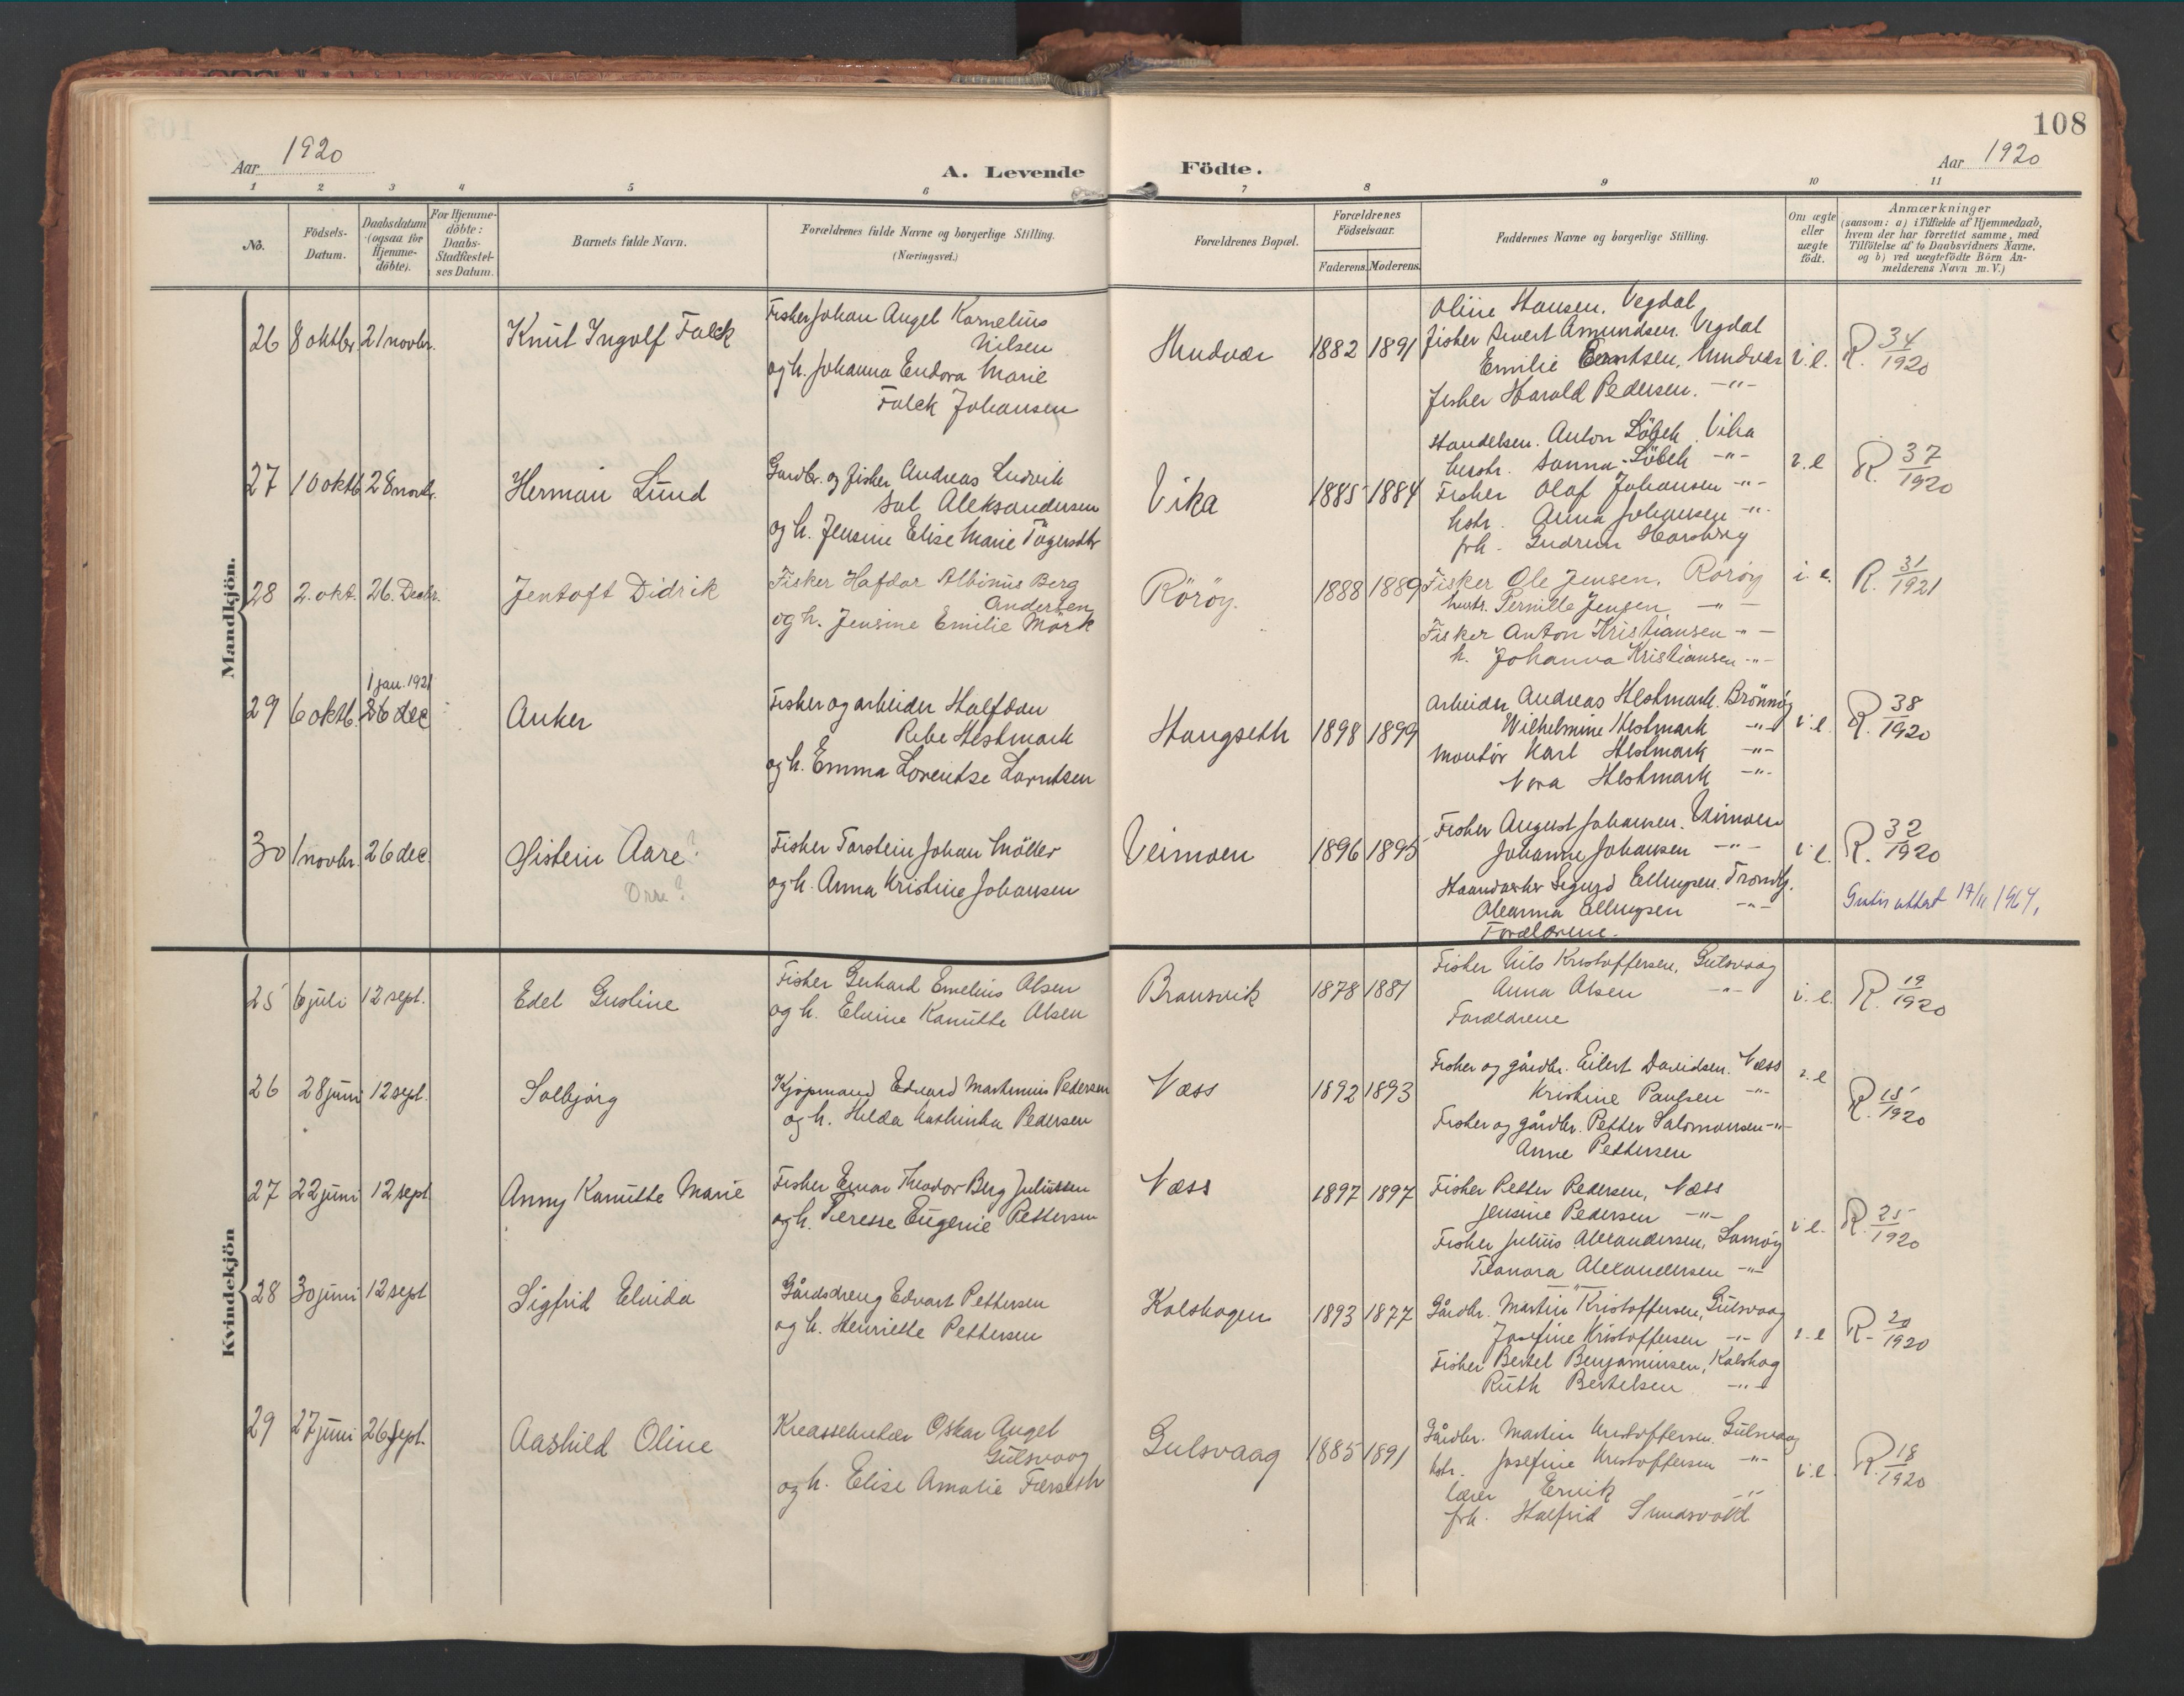 108
Aar 1920
A. Levende Födte.
Aar 1920
1 2 3 4 5 6 7 8 9 10 11
No.
Födsels-Datum.
Daabsdatum (ogsaa for Hjemme-döbte).
For Hjemme-döbte: Daabs-Stadfæstel-ses Datum.
Barnets fulde Navn.
Forældrenes fulde Navne og borgerlige Stilling. (Næringsvei.)
Forældrenes Bopæl.
Forældrenes Födselsaar.
Faderens. Moderens.
Faddernes Navne og borgerlige Stilling.
Om ægte eller uægte födt.
Anmærkninger
(saasom: a) i Tilfælde af Hjemmedaab,
hvem der har forrettet samme, med
Tilföielse af to Daabsvidners Navne,
og b) ved uægtefödte Börn An-
melderens Navn m. V.)
Mandkjön.
26 8 oktbr. 21 novbr. Knut Ingolf Falck
Fisker Johan Angel Kornelius
Nilsen
og h. Johanna Eudora Marie
Falck Johansen
Hundvær 1882 1891
Oline Hansen, Vegdal
Fisker Sivert Amundsen. Vegdal
Emilie Berntsen, Hundvær
Fisker Harald Pedersen. -"-
i. e. R. 34/1920
27 10 oktb 28 novbr. Herman Lund
Gardbr. og fisker Andreas Ludvik
Sal. Aleksandersen
og h. Jensine Elise Marie
Vika 1885 1884
Handelsm. Anton Löbek, Vika
hustr. Sanna Löbek -"-
Fisker Olaf Johansen -"-
hstr. Anna Johansen -"-
frk. Gudrun
i. e R. 37/1920
28 2. okt. 26. Decbr. Jentoft Didrik
Fisker Hafdor Albinus Berg
Andersen
og h. Jensine Emilie Mørk
Röröy. 1888 1889
Fisker Ole Jensen, Rörøy
hustr. Pernille Jensen -"-
Fisker Anton Kristiansen -"-
h. Johanna Kristiansen -"-
i. e. R. 31/1921
1 jan. 1921
29 6 oktb. 26 dec Anker
Fisker og arbeider Halfdan
Rebe Hestmark
og h. Emma Lorentse Larntsen
Hongseth 1898 1899
Arbeider Andreas Hestmark. Brönnöy
Wilhelmine Hestmark -"-
Montör Karl Hestmark -"-
Nora Hestmark -"-
i. e. R. 38/1920
30 1 novbr. 26 dec. Øistein Aare?
Orre?
Fisker Torstein Johan Möller
og h. Anna Kristine Johansen
Veimoen 1896 1895
Fisker August Johansen. Veimoen
Johanne Johansen -"-
Haandverker Sigurd Ellingsen. Trondhj.
Oleanna Ellingsen -"-
Forældrene.
i. e. R. 32/1920
Gratis attest 17/11 1964.
Kvindekjön
25 6 juli 12 sept. Edel Gustine
Fisker Gerhard Emelius Olsen
og h. Elvine Kanutte Olsen
Bransvik 1878 1881
Fisker Nils Kristoffersen, Gulsvaag
Anna Olsen -"-
Forældrene
i. e. R. 19/1920
26 28 juni 12 sept. Solbjørg
Kjøpmand Edvard Martinius Pedersen
og h. Hilda Kathinka Pedersen
Næss 1892 1893
Fisker og gårdbr. Eilert Davidsen. Næss
Kristine Paulsen -"-
Fisker og gårdbr. Petter Salomonsen -"-
Anne Pettersen
i. e R. 15/1920
27 22 juni 12 sept Anny Kanutte Marie
Fisker Einar Theodor Berg Juliussen
og h. Terese Eugenie Pettersen
Næss 1897 1897
Fisker Petter Pedersen, Næss
Jensine Pedersen -"-
Fisker Julius Alexandersen, Lamøy
Eleanora Alexandersen -"-
i. e. R. 25/1920
28 30 juni 12 sept Sigfrid Elvida
Gårdsdreng Edvart Pettersen
og h. Henriette Pettersen
Kolshagen 1893 1877
Gårdbr. Martin Kristoffersen, Gulsvaag
Josefine Kristoffersen -"-
Fisker Bertel Benjaminsen, Kolshag
Ruth Bertelsen -"-
i. e R. 20/1920
29 27 juni 26 sept. Aashild Oline
Oskar Angel
Gulsvaag
og h. Elise Amalie Færseth
Gulsvaag 1885 1891
Gårdbr. Martin Kristoffersen. Gulsvaag
hstr. Josefine Kristoffersen -"-
lærer Ervik -"-
frk. Halfrid Sundsvold
i. e. R. 18/1920